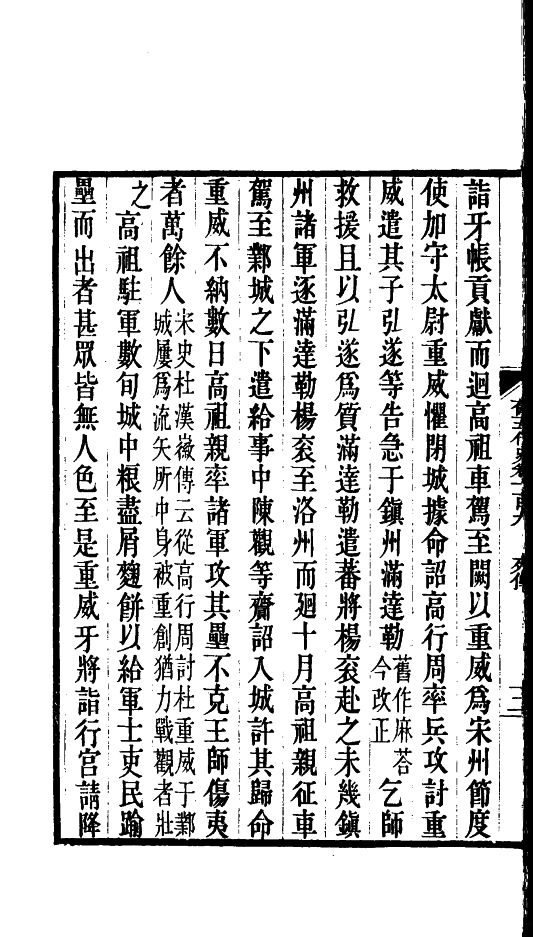 詣牙帳貢獻而迴高祖車駕至闕以重威爲宋州節度
使加守太尉重威懼閉城據命詔高行周率兵攻討重
威遣其子弘遂等告急于鎮州滿達勒舊作麻荅今改正乞師
救援且以弘遂爲質滿達勒遣蕃將楊衮赴之未幾鎮
州諸軍逐滿達勒楊衮至洺州而迴十月高祖親征車
駕至鄴城之下遣給事中陳觀等齎詔入城許其歸命
重威不納數日高祖親率諸軍攻其壘不克王師傷夷
者萬餘人宋史杜漢徽傳云從高行周討杜重威于鄴城屢爲流矢所中身被重創猶力戰觀者壯
之高祖駐軍數旬城中粮盡屑麴餅以給軍士吏民踰
壘而出者甚眾皆無人色至是重威牙將詣行宮請降